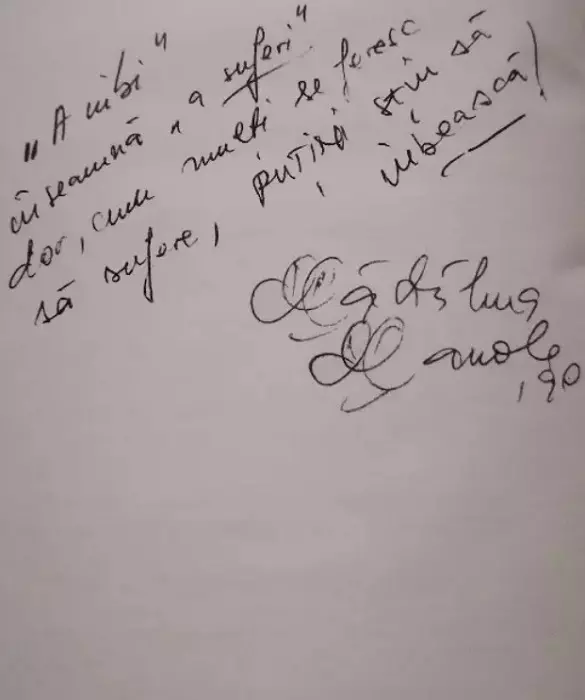 „A iubi"
înseamnă „a suferi"
dar, cum mulți se feresc
să sufere, PUȚINI știu să
iubească!
Mădălina
Manole
'90